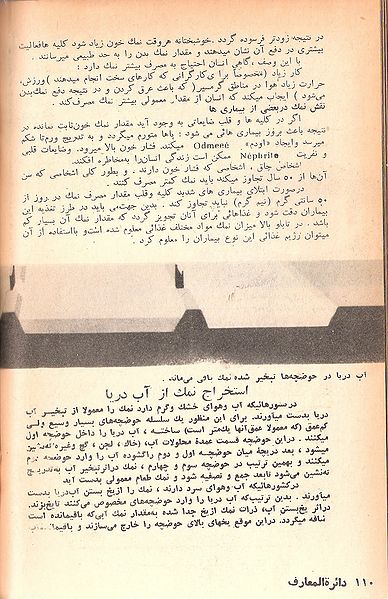 در نتیجه زودتر فرسوده گردد. خوشبختانه هروقت نمك خون زیاد شود کلیه هافعالیت
بیشتری در دفع آن نشان میدهند و مقدار نمك بدن را به حد طبیعی میرسانند.
با این وصف، گاهی انسان احتیاج به مصرف بیشتر نمك دارد:
کار زیاد (مخصوصاً برای کارگرانی که کارهای سخت انجام میدهند) ورزش،
حرارت زیاد هوا در مناطق گرمسیر (که باعث عرق کردن و در نتیجه دفع نمك‌بدن
می‌شود) ایجاب میکند که انسان از مقدار معمولی بیشتر نمك مصرف‌کند.
نقش نمك دربعضی از بیماری ها
اگر در کلیه ها و قلب ضایعاتی به وجود آید مقدار نمك خون‌ثابت نمانده در
نتیجه باعث بروز بیماری هائی می شود: پاها متورم میگردد و به تدریج ورم‌تا شکم
میرسد وایجاد «ادم» Odmeeé میکند. فشار خون بالا میرود. وضایعات قلبی
و نفریت Néphrite ممکن است زندگی انسان‌را بمخاطره افکند.
اشخاص چاق، اشخاصی که فشار خون دارند. و بطور کلی اشخاصی که سن
آن‌ها از ۵۰ سال تجاوز میکند باید نمك کمتر مصرف کنند.
درصورت ابتلای بیماری های شدید کلیه وقلب مقدار مصرف نمك در روز از
۵۰ سانتی گرم (نیم گرم) نباید تجاوز کند. بدین جهت‌می باید در طرز تغذیه این
بیماران دقت شود و غذاهائی برای آنان تجویز گردد که مقدار نمك آن بسیار کم
باشد. در تابلو بالا میزان نمك مواد مختلف غذائی معلوم شده است‌و بااستفاده از آن
میتوان رژیم غذائی این نوع بیماران را معلوم کرد.
آب دریا در حوضچه‌ها تبخیر شده نمك باقی می‌ماند.
استخراج نمك از آب دریا
درکشورهائیکه آب وهوای خشك وگرم دارد نمك را معمولا از تبخیر آب
دریا بدست میآورند. برای این منظور یك سلسله حوضچه‌های بسیار وسیع ولی
کم‌عمق (که معمولا عمق‌آنها یك‌متر است) ساخته، آب دریا را داخل حوضچه اول
میکنند. دراین حوضچه قسمت عمدهٔ محلولات آب، (خاك، لجن، گچ وغیره)ته‌نشین
میشود، بعد دریچهٔ میان حوضچه اول و دوم راگشوده آب را وارد حوضچه دوم
میکنند و بهمین ترتیب در حوضچه سوم و چهارم، نمك دراثرتبخیر آب به‌تدریج
ته‌نشین می‌شود تابعد جمع و تصفیه شود و نمك طعام معمولی بدست آید
درکشورهائیکه آب وهوای سرد دارند، نمك را ازیخ بستن آب‌دریا بدست
میآورند. بدین ترتیب‌که آب دریا را وارد حوضچه‌های مخصوص می‌کنند تایخ‌بزند.
دراثر یخ‌بستن آب، ذرات نمك ازیخ جدا شده به‌مقدار نمك آبی‌که باقیمانده است
اضافه میگردد. دراین موقع یخهای بالای حوضچه را خارج می‌سازند و باقیمانده
۱۱۰ دائرةالمعارف